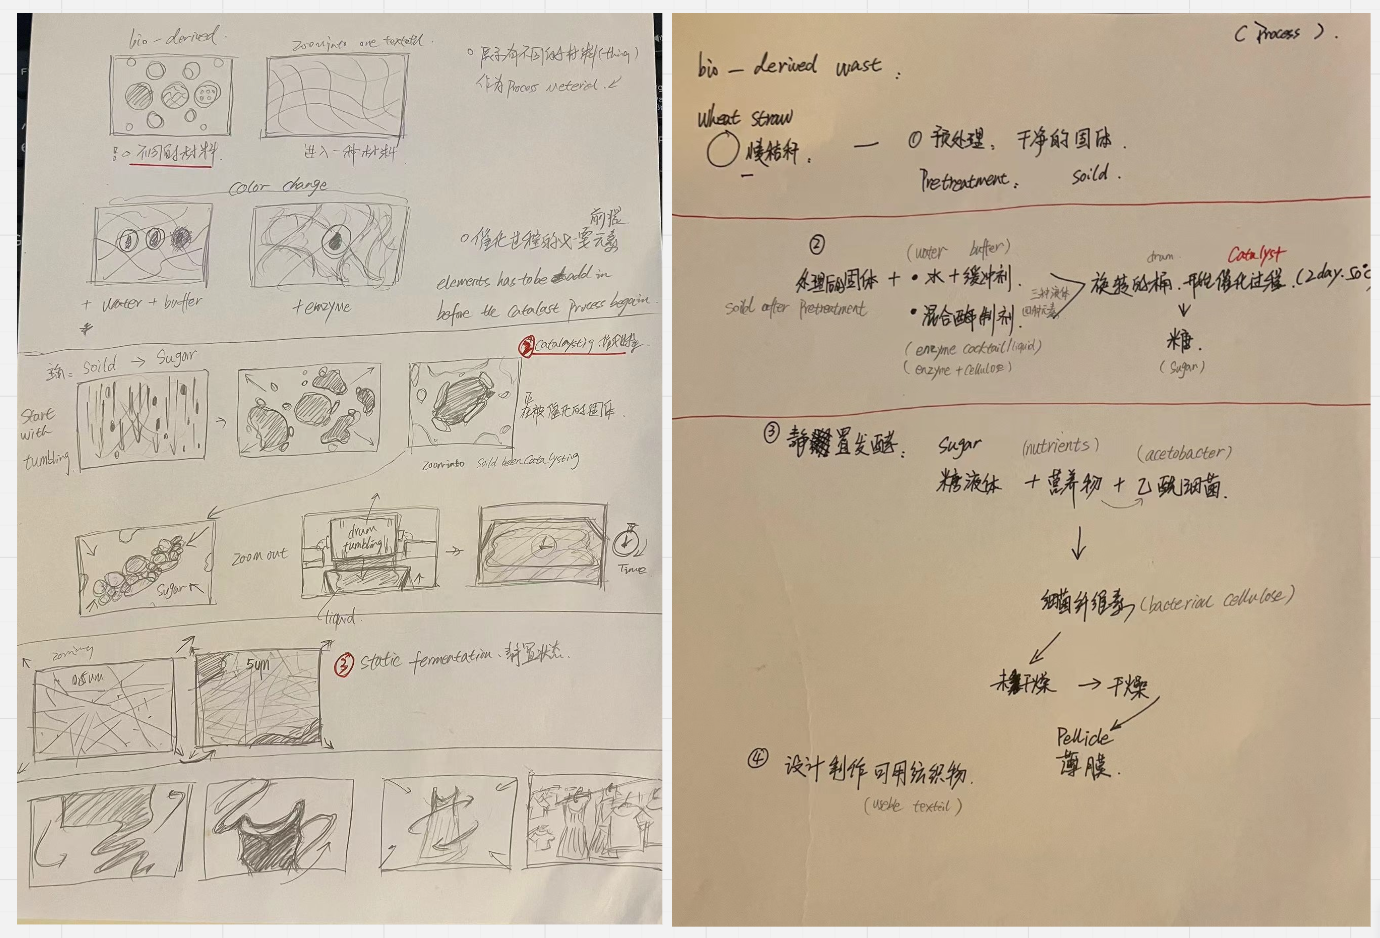 bio-derived.
zoom into one textail.
不同的材料
进入一种材料
展示有不同的材料(thing)
作为process meterial.
color change
+ water + buffer
+ enzyme
前提
催化过程的必要元素
elements has to be add in
before the catalast process begain.
Soild → Sugar
Start
with
tumbling
② catalysting.
在被催化的固体.
zoom into soild been catalysting
Sugar
zoom out
drum
tumbling
liquid.
Time
zooming
5um
③ static fermentation. 静置状态.
(Process).
bio-derived wast.
Wheat Straw
麦秸秆.
— ① 预处理. 干净的固体.
Pretreatment. Soild.
②
(water buffer)
处理后固体 + • 水+缓冲剂.
soild after Pretreatment
• 混合酶制剂.
(enzyme cocktail/liquid)
(enzyme + cellulose)
三种液体
四种元素
drum
Catalyst
旋转的桶. 开始催化过程. (2day.50°C
糖.
(Sugar)
③ 静置发酵. Sugar (nutrients) (acetobacter)
糖液体 + 营养物 + 乙酰细菌.
细菌纤维素 (bacterial cellulose)
未干燥 → 干燥
Pellicle
薄膜.
④ 设计制作可用纺织物.